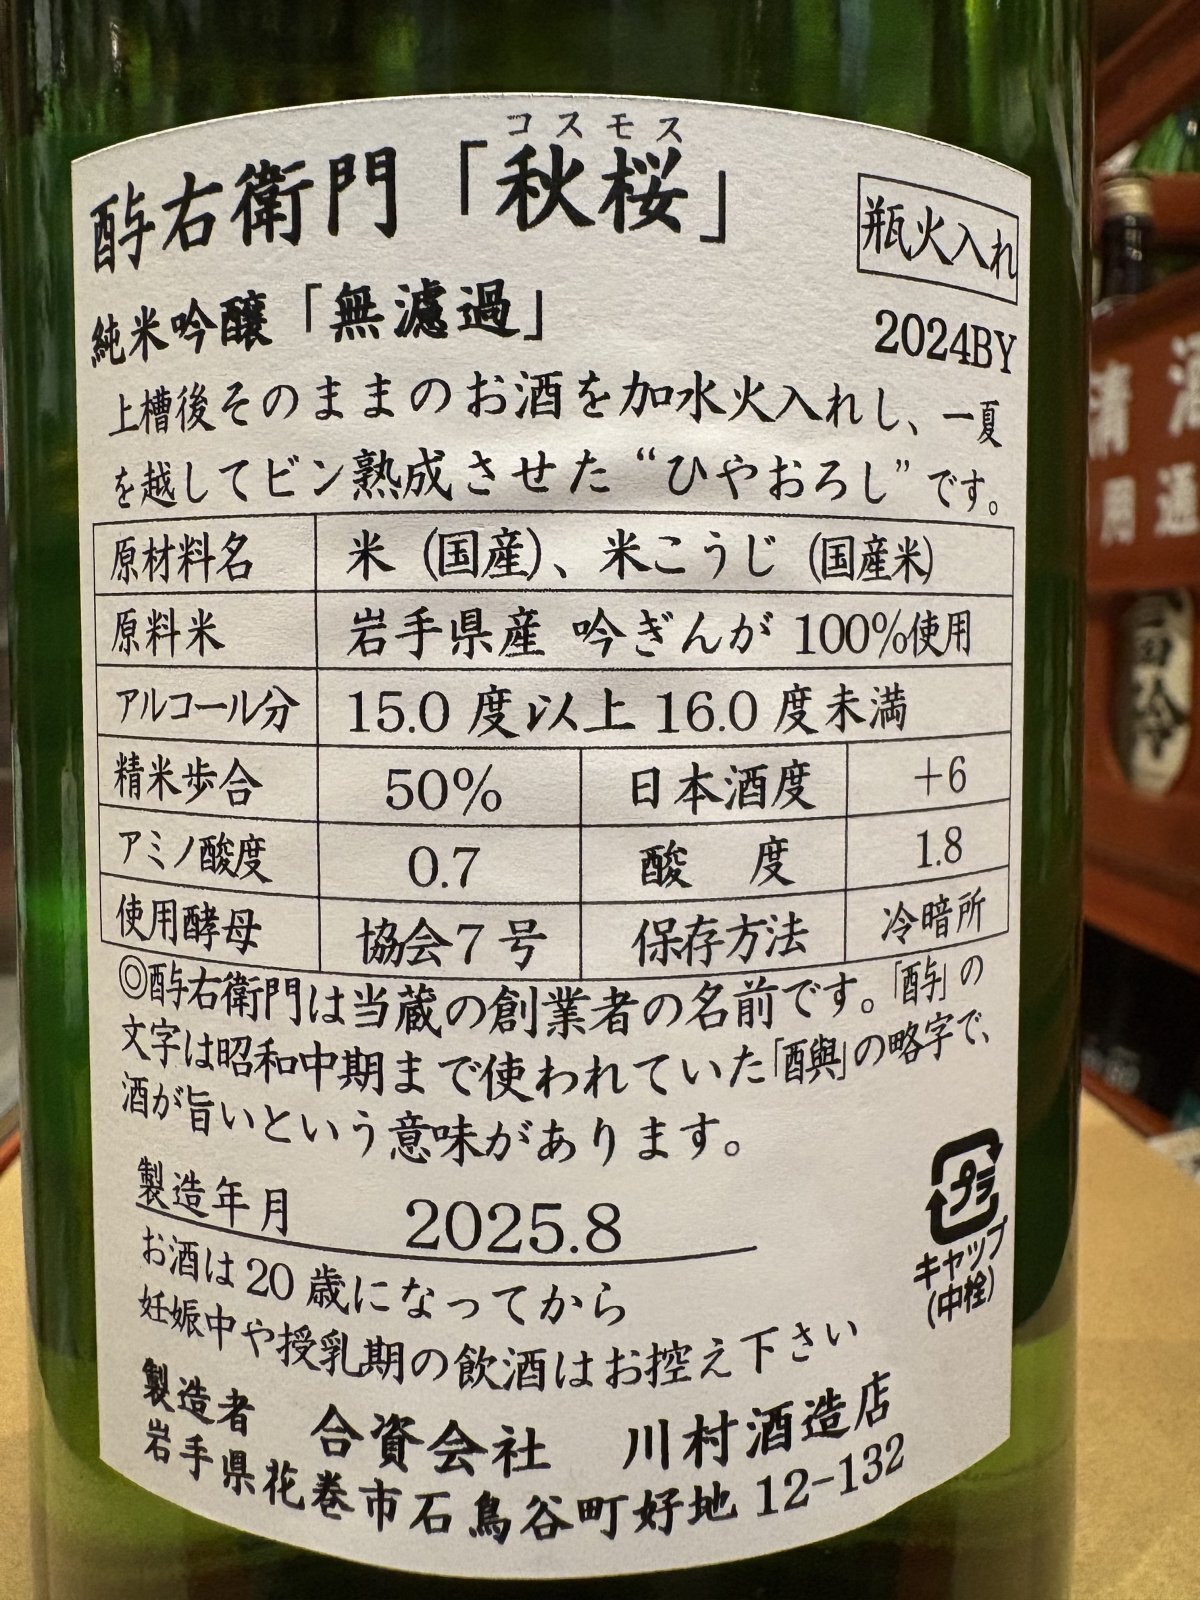 コスモス
酉与右衛門「秋桜」
瓶火入れ
純米吟醸「無濾過」
2024BY
上槽後そのままのお酒を加水火入れし、一夏
を越してビン熟成させた“ひやおろし”です。
原材料名 米(国産)、米こうじ(国産米)
原料米 岩手県産 吟ぎんが 100%使用
アルコール分 15.0度以上16.0度未満
精米歩合 50% 日本酒度 +6
アミノ酸度 0.7 酸度 1.8
使用酵母 協会7号 保存方法 冷暗所
◎酉与右衛門は当蔵の創業者の名前です。「酉与」の
文字は昭和中期まで使われていた「酉與」の略字で、
酒が旨いという意味があります。
製造年月 2025.8
プラ
キャップ
(中栓)
お酒は20歳になってから
妊娠中や授乳期の飲酒はお控え下さい
製造者 合資会社 川村酒造店
岩手県花巻市石鳥谷町好地12-132
清酒